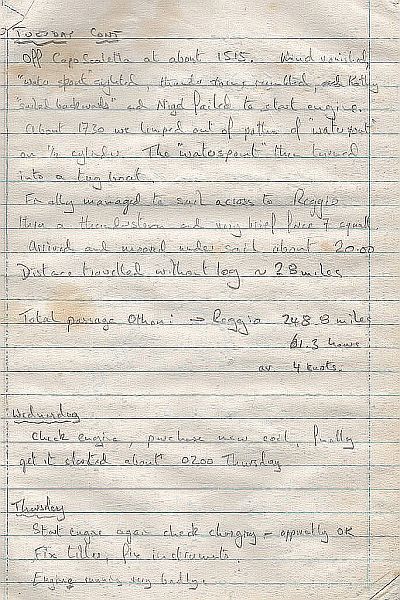 TUESDAY CONT
Off Capo Scaletta at about 1515. Wind vanished,
"water spout" sighted, thunder storms rumbled, and Kathy
"sailed backwards" and Nigel failed to start engine.
About 1730 we limped out of path of "waterspout"
on ½ cylinder. The "waterspout" then turned
into a tug boat.
Finally managed to sail across to Reggio
thro a thunderstorm and very brief force 7 squall
Arrived and moored under sail about 20.00
Distance travelled without log ~ 28 miles
Total passage Othoni → Reggio 248.8 miles
61.3 hours
av 4 knots.
Wednesday
Check engine, purchase new coil, finally
get it started about 0200 Thursday
Thursday
Start engine again check charging - apparently OK
Fix tiller, fix instruments
Engine running very badly.